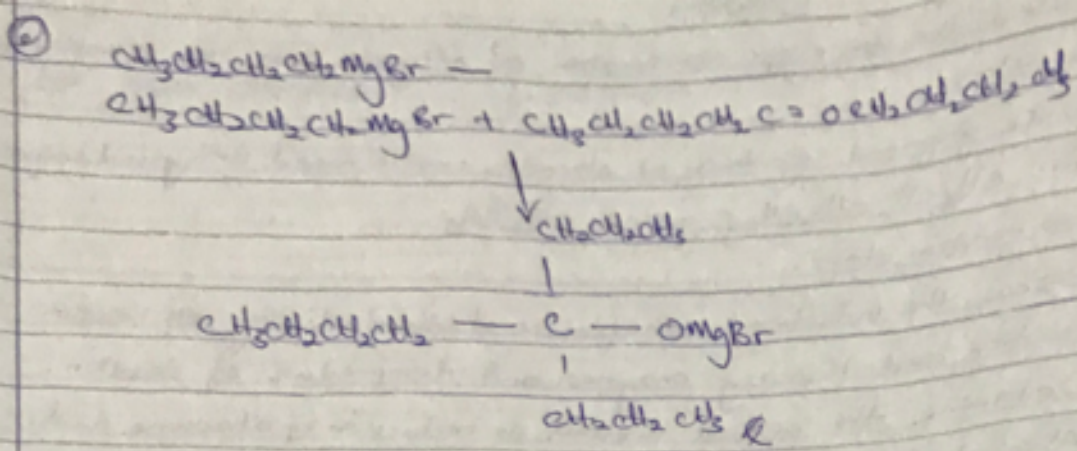 e
CH3CH2CH2CH2MgBr —
CH3CH2CH2CH2MgBr + CH3CH2CH2CH2C=OCH2CH2CH2CH3
CH2CH2CH3
CH3CH2CH2CH2 — C — OMgBr
CH2CH2CH3